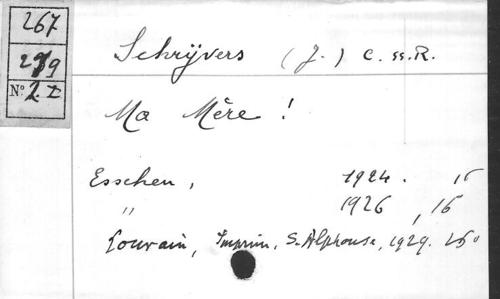 267
279
Nº 2. I
Schrijvers (J.) C. ss. R.
Ma Mère !
Esschen, 1924. 16
" 1926, 16
Louvain, Imprim. S. Alphonse, 1929.